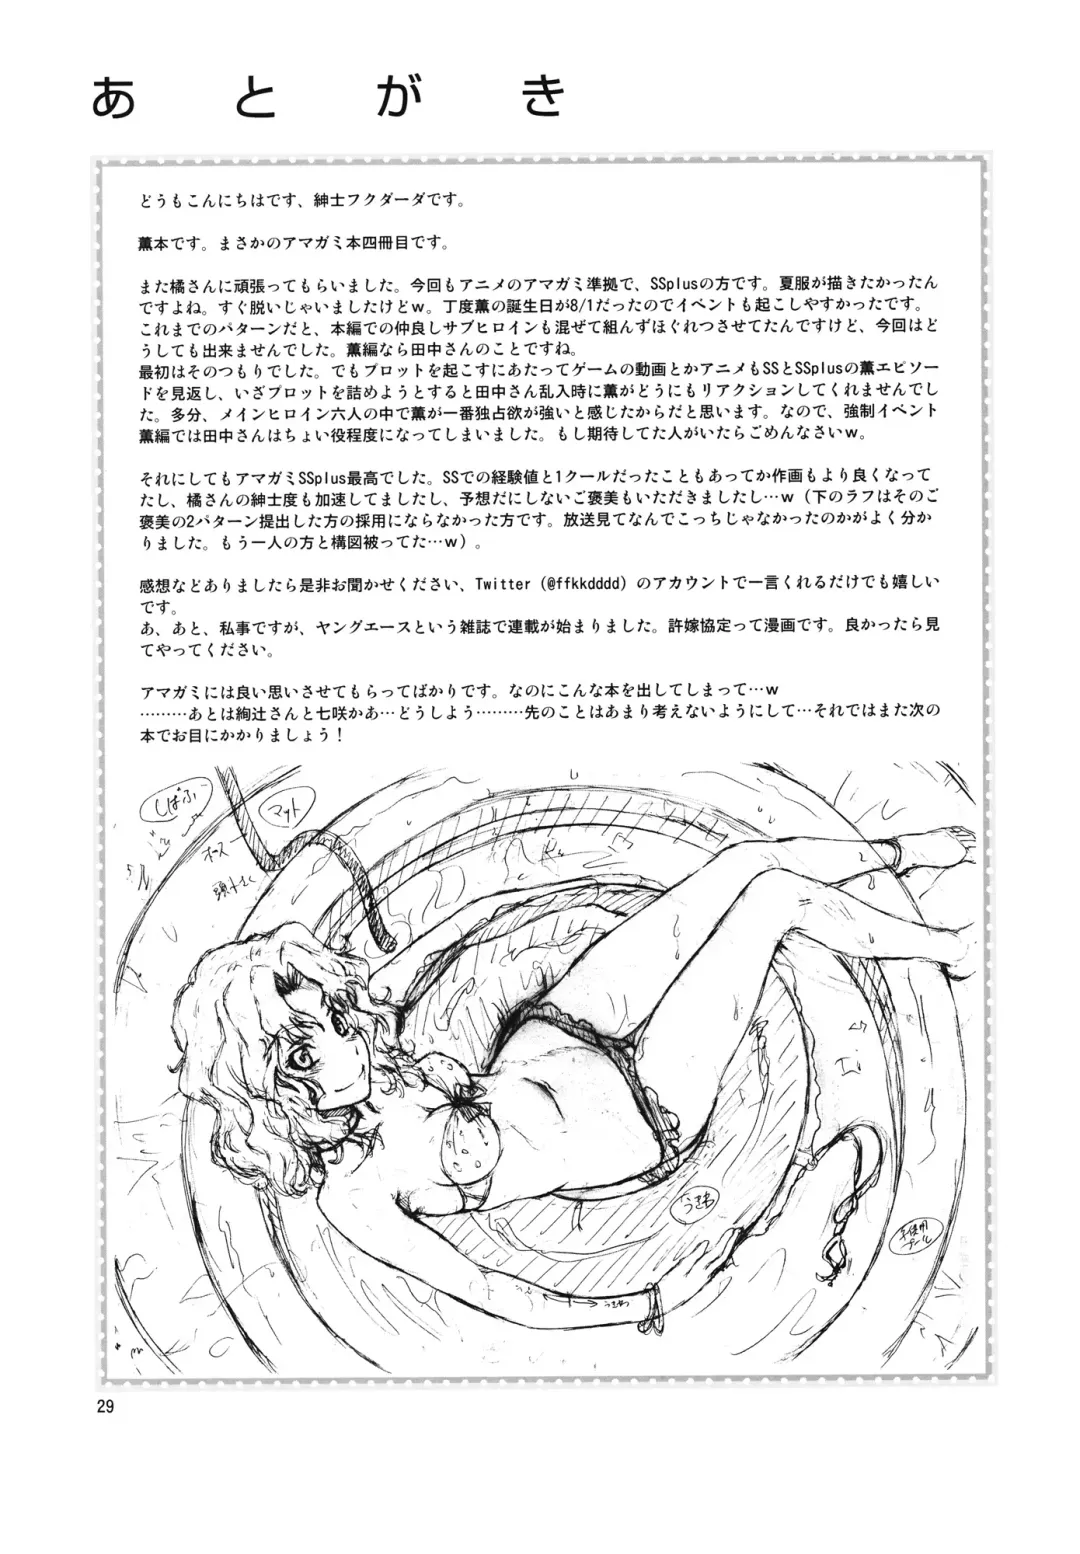 あとがき
どうもこんにちはです、紳士フクダーダです。
薫本です。まさかのアマガミ本四冊目です。
また橘さんに頑張ってもらいました。今回もアニメのアマガミ準拠で、SSplusの方です。夏服が描きたかったん
ですよね。すぐ脱いじゃいましたけどw。丁度薫の誕生日が8/1だったのでイベントも起こしやすかったです。
これまでのパターンだと、本編での仲良しサブヒロインも混ぜて組んずほぐれつさせてたんですけど、今回はど
うしても出来ませんでした。薫編なら田中さんのことですね。
最初はそのつもりでした。でもプロットを起こすにあたってゲームの動画とかアニメもSSとSSplusの薫エピソー
ドを見返し、いざプロットを詰めようとすると田中さん乱入時に薫がどうにもリアクションしてくれませんでし
た。多分、メインヒロイン六人の中で薫が一番独占欲が強いと感じたからだと思います。なので、強制イベント
薫編では田中さんはちょい役程度になってしまいました。もし期待してた人がいたらごめんなさいw。
それにしてもアマガミSSplus最高でした。SSでの経験値と1クールだったこともあってか作画もより良くなって
たし、橘さんの紳士度も加速してましたし、予想だにしないご褒美もいただきましたし…w(下のラフはそのご
褒美の2パターン提出した方の採用にならなかった方です。放送見てなんでこっちじゃなかったのかがよく分か
りました。もう一人の方と構図被ってた…w)。
感想などありましたら是非お聞かせください、Twitter(@ffkkdddd)のアカウントで一言くれるだけでも嬉しい
です。
あ、あと、私事ですが、ヤングエースという雑誌で連載が始まりました。許嫁協定って漫画です。良かったら見
てやってください。
アマガミには良い思いさせてもらってばかりです。なのにこんな本を出してしまって…w
………あとは絢辻さんと七咲かあ…どうしよう………先のことはあまり考えないようにして…それではまた次の
本でお目にかかりましょう!
しぱふ
マット
ホース
うきわ
うきわ
プール
29